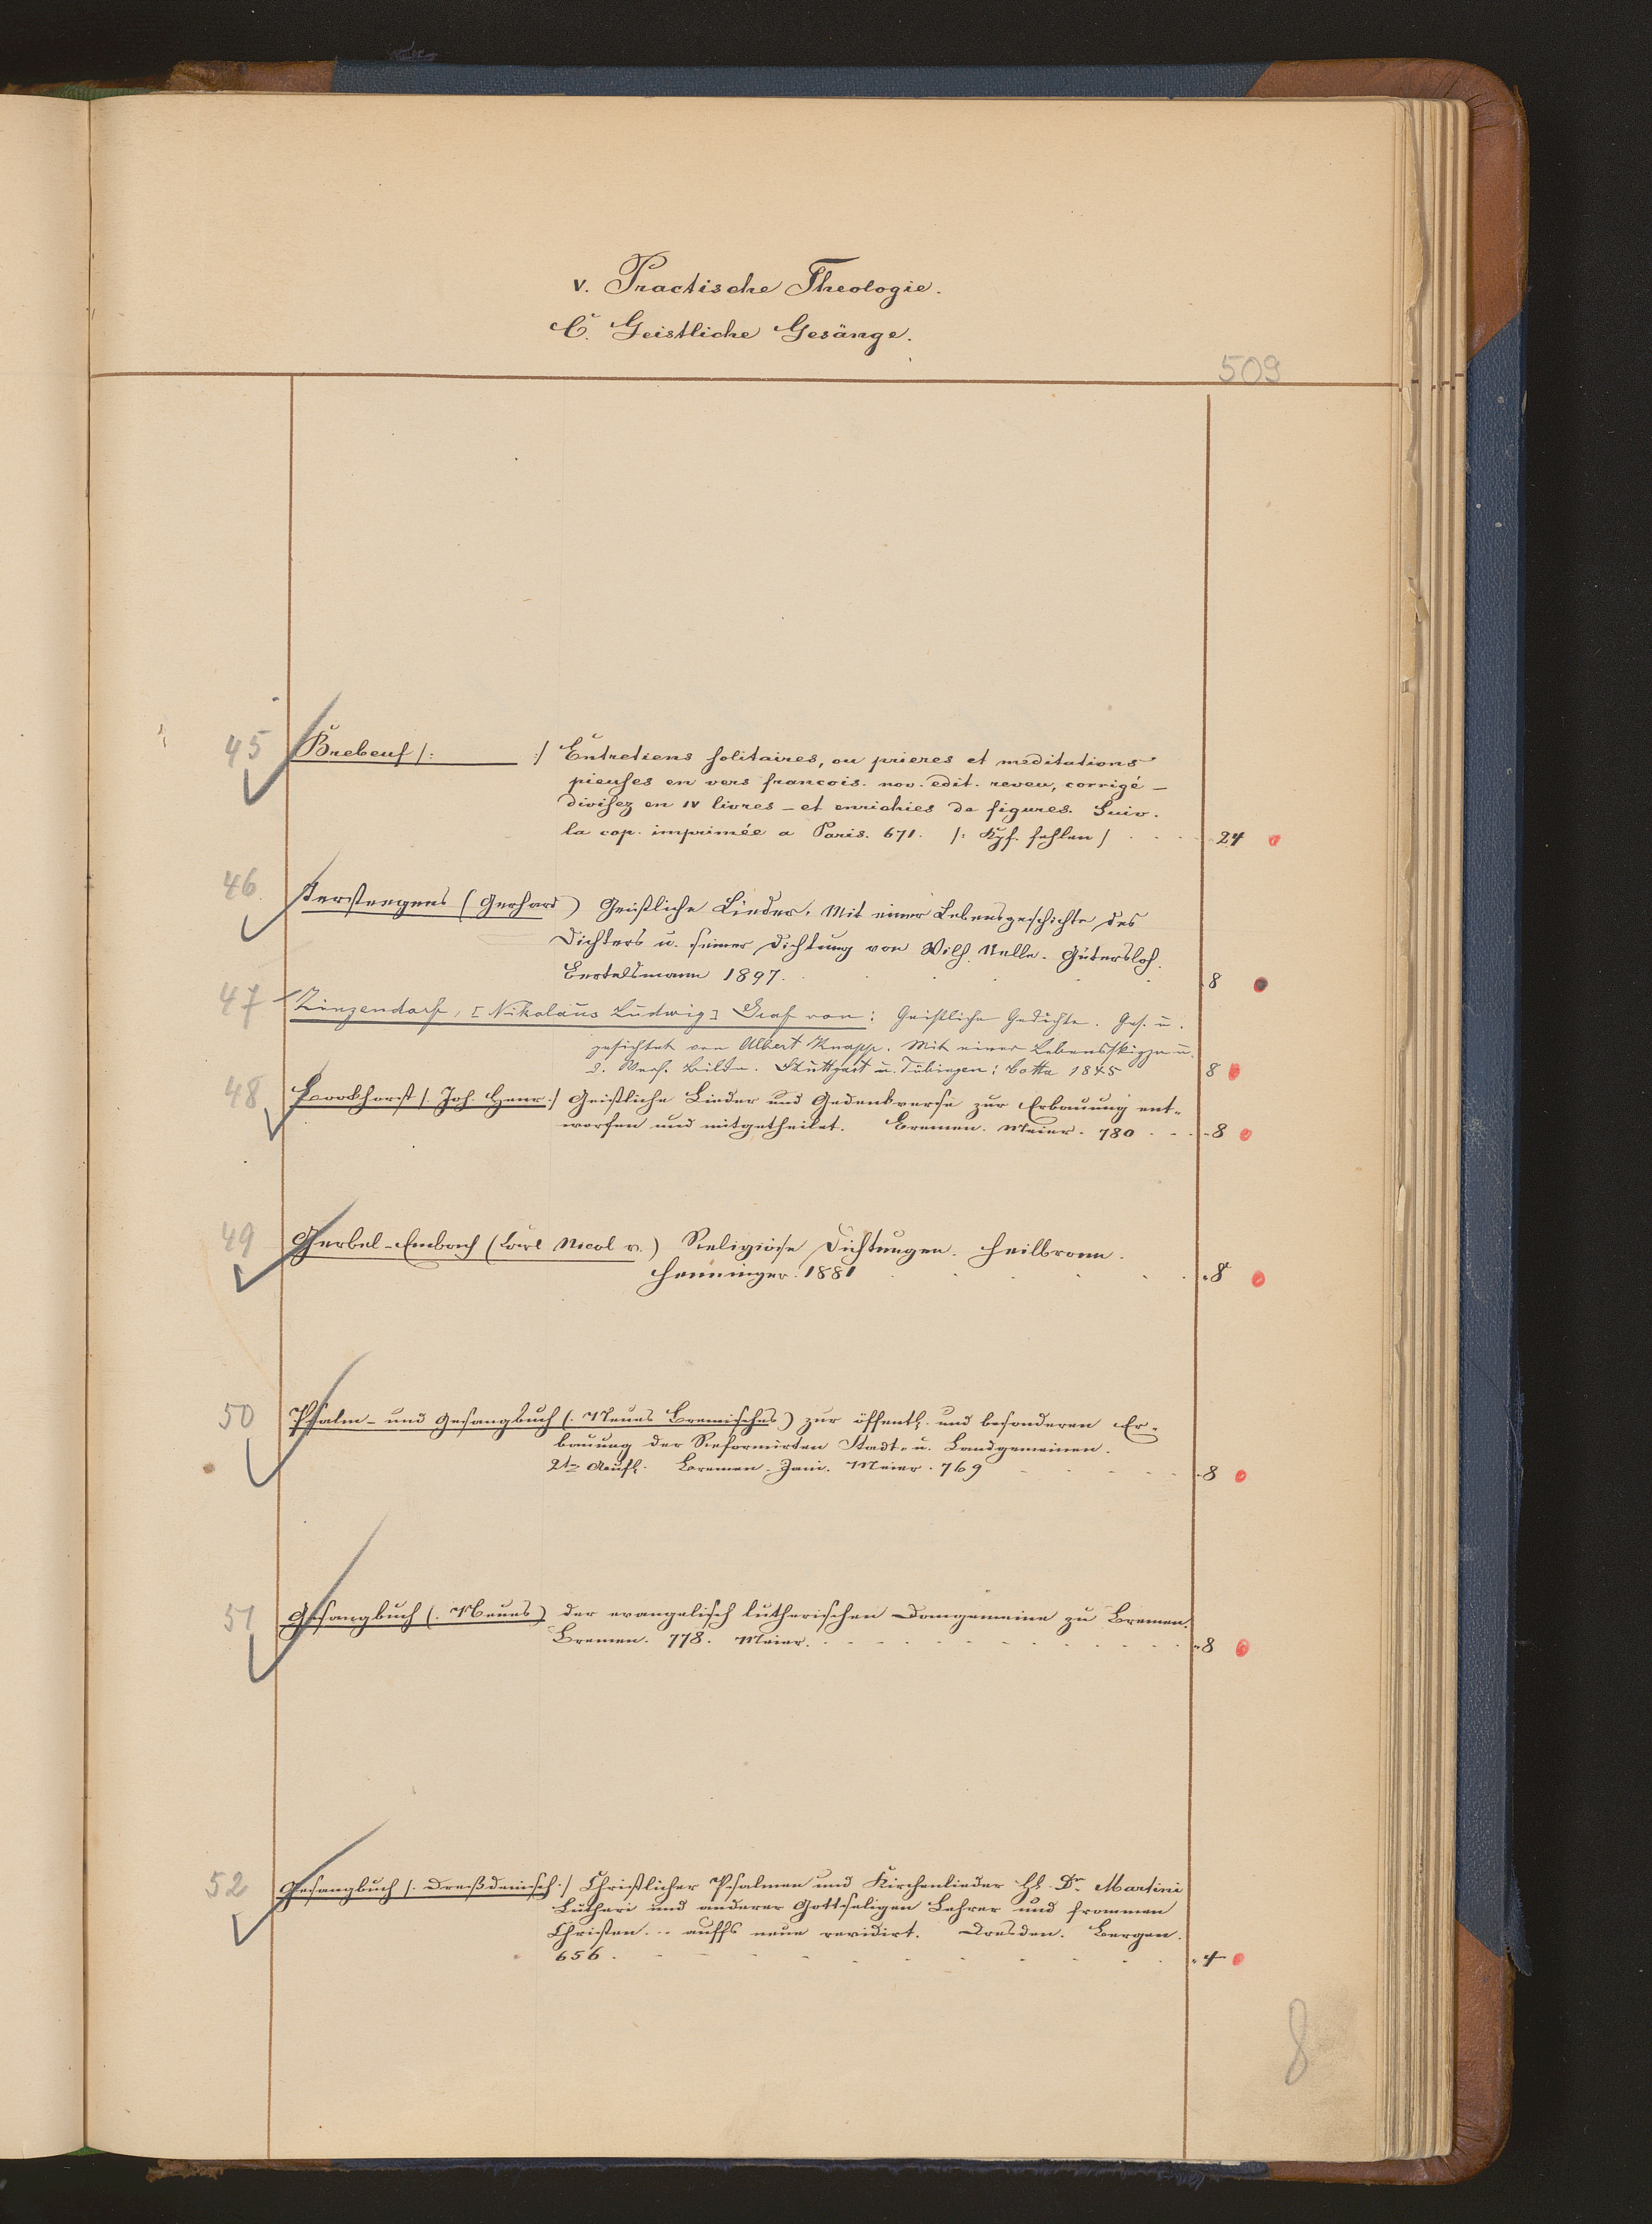 V. Practische Theologie.
C. Geistliche Gesänge.
509
45 Brebeuf /: :/ Entretiens solitaires, ou prieres et meditations
pieuses en vers francois. nov. edit. reveu, corrigé –
divisez en IV livres – et enrichies de figures. Suiv.
la cop. imprimée a Paris. 671. /: Kpf. fehlen / 24
46. Tersteegens (Gerhard) Geistliche Lieder. Mit einer Lebensgeschichte des
Dichters u. seiner Dichtung von Wilh. Nelle. Gütersloh.
Bertelsmann 1897. 8
47 Zinzendorf, [Nikolaus Ludwig] Graf von: Geistliche Gedichte. Ges. u.
gesichtet von Albert Knapp. Mit einer Lebensskizze u.
d. Verf. Bilde. Stuttgart u. Tübingen: Cotta 1845 8
48 /. Joh. Henr :/ Geistliche Lieder und Gedenkverse zur Erbauung ent-
worfen und mitgetheilet. Bremen. Meier. 780 8
49 Gerbel-Embach (Carl Nicol v.) Religiöse Dichtungen. Heilbronn.
Henninger. 1881 8
50 Psalm- und Gesangbuch (. Neues Bremisches) zur öffentl. und besonderen Er-
bauung der Reformirten Stadt- u. Landgemeinen.
2te Aufl. Bremen. Jani. Meier. 769 8
51 Gesangbuch (. Neues) der evangelisch lutherischen Domgemeine zu Bremen.
Bremen. 778. Meier. 8
52 Gesangbuch /. Dreßdenisch :/ Christlicher Psalmen und Kirchenlieder Hl. Dr. Martini
Lutheri und anderer Gottseligen Lehrer und frommen
Christen... auffs neue revidirt. Dresden. Bergen.
656. 4
8